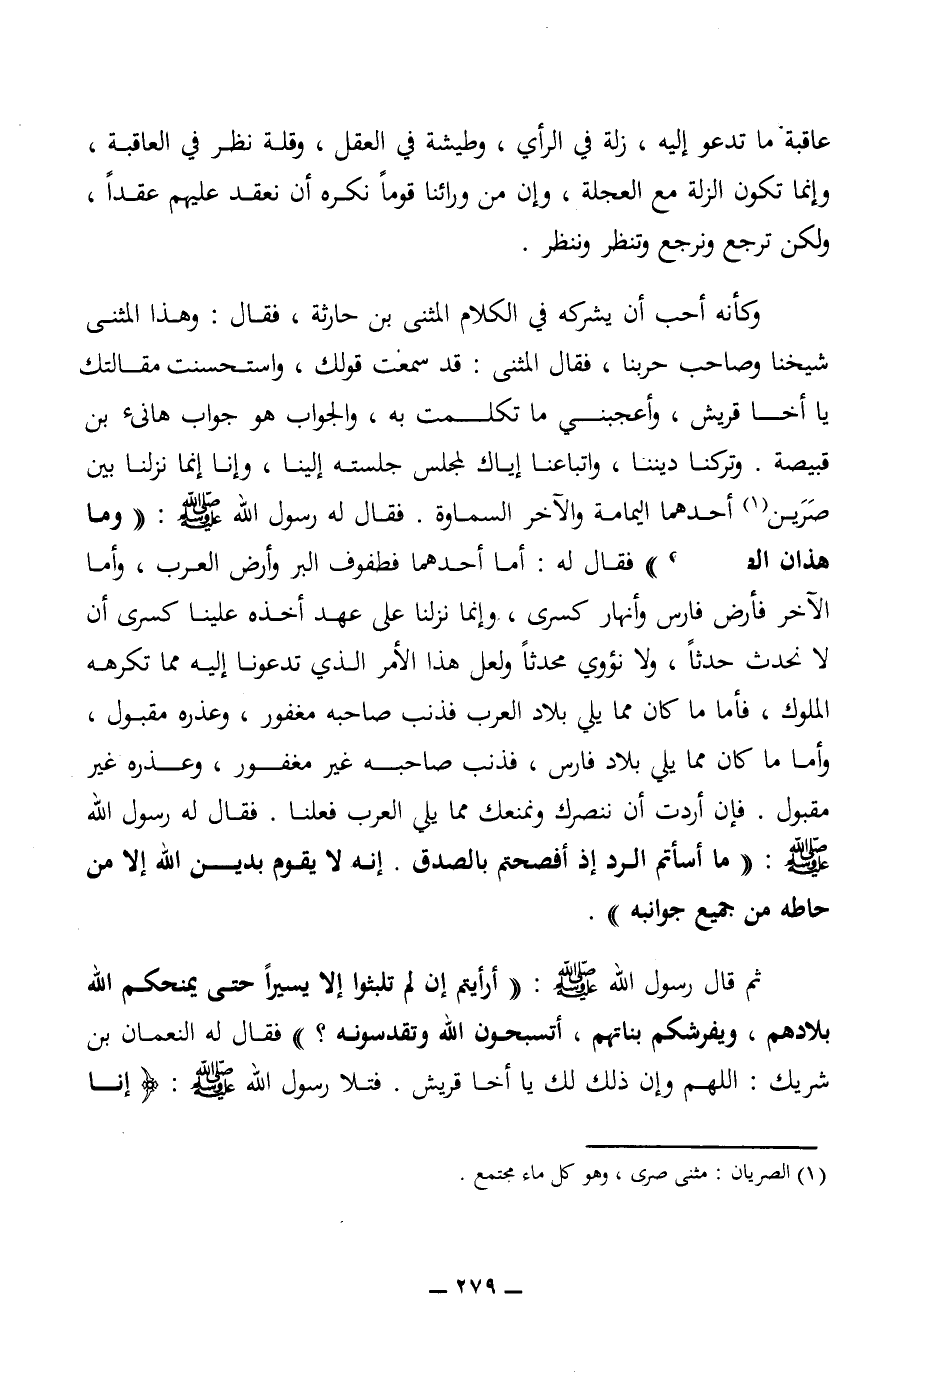 عاقبة ما تدعو إليه ، زلة في الرأي ، وطيشة في العقل ، وقلة نظر في العاقبة ،
وإنما تكون الزلة مع العجلة ، وإن من ورائنا قوماً نكره أن نعقد عليهم عقداً ،
ولكن ترجع ونرجع وتنظر وننظر .
وكأنه أحب أن يشركه في الكلام المثنى بن حارثة ، فقال : وهذا المثنى
شيخنا وصاحب حربنا ، فقال المثنى : قد سمعت قولك ، واستحسنت مقالتك
يا أخا قريش ، وأعجبني ما تكلمت به ، والجواب هو جواب هانىء بن
قبيصة . وتركنا ديننا ، واتباعنا إياك لمجلس جلسته إلينا ، وإنا إنما نزلنا بين
صَرَيين(١) أحدهما اليمامة والآخر السماوة . فقال له رسول الله ﷺ : « وما
هذان ؟ » فقال له : أما أحدهما فطفوف البر وأرض العرب ، وأما
الآخر فأرض فارس وأنهار كسرى ، وإنما نزلنا على عهد أخذه علينا كسرى أن
لا نحدث حدثاً ، ولا نؤوي محدثاً ولعل هذا الأمر الذي تدعونا إليه مما تكرهه
الملوك ، فأما ما كان مما يلي بلاد العرب فذنب صاحبه مغفور ، وعذره مقبول ،
وأما ما كان مما يلي بلاد فارس ، فذنب صاحبه غير مغفور ، وعذره غير
مقبول . فإن أردت أن ننصرك ونمنعك مما يلي العرب فعلنا . فقال له رسول الله
ﷺ : « ما أسأتم الرد إذ أفصحتم بالصدق . إنه لا يقوم بدين الله إلا من
حاطه من جميع جوانبه » .
ثم قال رسول الله ﷺ : « أرأيتم إن لم تلبثوا إلا يسيراً حتى يمنحكم الله
بلادهم ، ويفرشكم بناتهم ، أتسبحون الله وتقدسونه ؟ » فقال له النعمان بن
شريك : اللهم وإن ذلك لك يا أخا قريش . فتلا رسول الله ﷺ : ﴿ إنا
(١) الصريان : مثنى صرى ، وهو كل ماء مجتمع .
ـ ٢٧٩ ـ